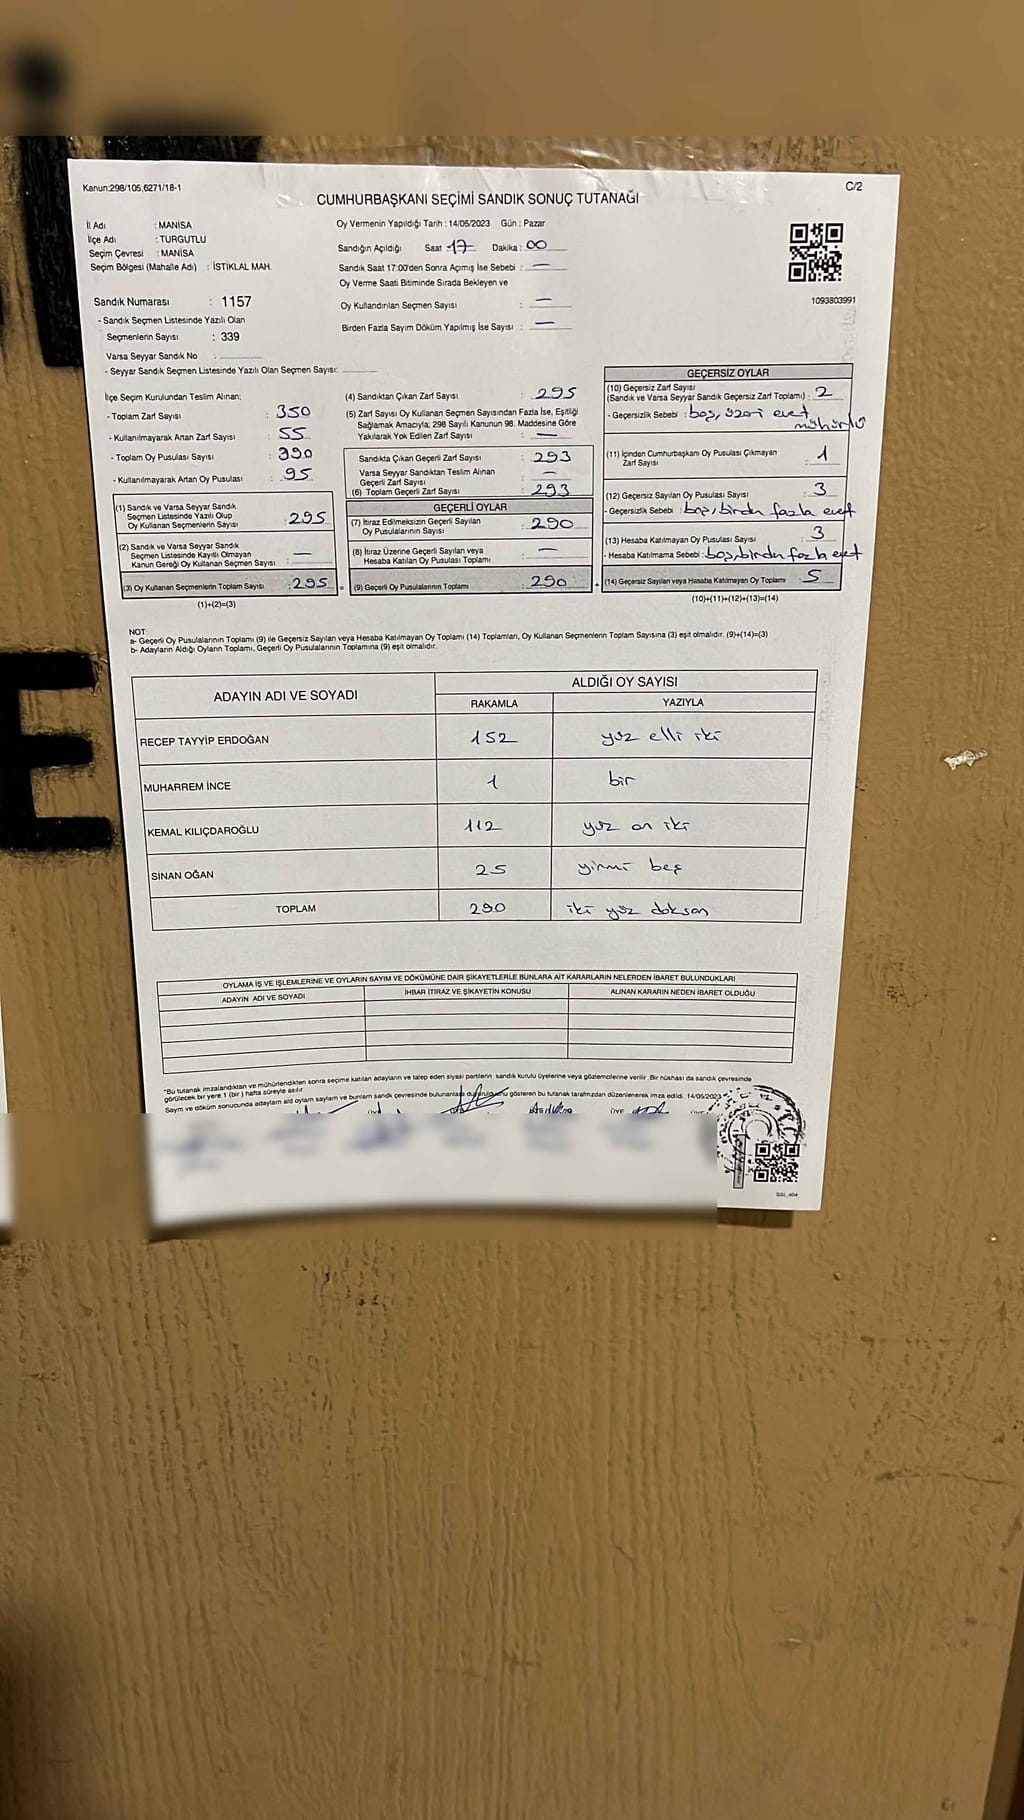 Kanun:298/105,6271/18-1
C/2
CUMHURBAŞKANI SEÇİMİ SANDIK SONUÇ TUTANAĞI
İl Adı : MANİSA
İlçe Adı : TURGUTLU
Seçim Çevresi : MANİSA
Seçim Bölgesi (Mahalle Adı) : İSTİKLAL MAH.
Sandık Numarası : 1157
- Sandık Seçmen Listesinde Yazılı Olan
Seçmenlerin Sayısı : 339
Varsa Seyyar Sandık No :
- Seyyar Sandık Seçmen Listesinde Yazılı Olan Seçmen Sayısı:
Oy Vermenin Yapıldığı Tarih : 14/05/2023 Gün : Pazar
Sandığın Açıldığı Saat 17 Dakika : 00
Sandık Saat 17:00'den Sonra Açımış İse Sebebi : —
Oy Verme Saati Bitiminde Sırada Bekleyen ve
Oy Kullandırılan Seçmen Sayısı : —
Birden Fazla Sayım Döküm Yapılmış İse Sayısı : —
1093803991
İlçe Seçim Kurulundan Teslim Alınan;
- Toplam Zarf Sayısı : 350
- Kullanılmayarak Artan Zarf Sayısı : 55
- Toplam Oy Pusulası Sayısı : 390
- Kullanılmayarak Artan Oy Pusulası : 95
(1) Sandık ve Varsa Seyyar Sandık
Seçmen Listesinde Yazılı Olup
Oy Kullanan Seçmenlerin Sayısı : 295
(2) Sandık ve Varsa Seyyar Sandık
Seçmen Listesinde Kayıtlı Olmayan
Kanun Gereği Oy Kullanan Seçmen Sayısı : —
(3) Oy Kullanan Seçmenlerin Toplam Sayısı : 295 =
(1)+(2)=(3)
(4) Sandıktan Çıkan Zarf Sayısı : 295
(5) Zarf Sayısı Oy Kullanan Seçmen Sayısından Fazla İse, Eşitliği
Sağlamak Amacıyla; 298 Sayılı Kanunun 98. Maddesine Göre
Yakılarak Yok Edilen Zarf Sayısı : —
Sandıkta Çıkan Geçerli Zarf Sayısı : 293
Varsa Seyyar Sandıktan Teslim Alınan
Geçerli Zarf Sayısı : —
(6) Toplam Geçerli Zarf Sayısı : 293
GEÇERLİ OYLAR
(7) İtiraz Edilmeksizin Geçerli Sayılan
Oy Pusulalarının Sayısı : 290
(8) İtiraz Üzerine Geçerli Sayılan veya
Hesaba Katılan Oy Pusulası Toplamı : —
(9) Geçerli Oy Pusulalarının Toplamı : 290 +
GEÇERSİZ OYLAR
(10) Geçersiz Zarf Sayısı
(Sandık ve Varsa Seyyar Sandık Geçersiz Zarf Toplamı) : 2
- Geçersizlik Sebebi : boş, üzeri evet
mühürlü
(11) İçinden Cumhurbaşkanı Oy Pusulası Çıkmayan
Zarf Sayısı : 1
(12) Geçersiz Sayılan Oy Pusulası Sayısı : 3
- Geçersizlik Sebebi : boş, birden fazla evet
(13) Hesaba Katılmayan Oy Pusulası Sayısı : 3
- Hesaba Katılmama Sebebi : boş, birden fazla evet
(14) Geçersiz Sayılan veya Hesaba Katılmayan Oy Toplamı : 5
(10)+(11)+(12)+(13)=(14)
NOT:
a- Geçerli Oy Pusulalarının Toplamı (9) ile Geçersiz Sayılan veya Hesaba Katılmayan Oy Toplamı (14) Toplamları, Oy Kullanan Seçmenlerin Toplam Sayısına (3) eşit olmalıdır. (9)+(14)=(3)
b- Adayların Aldığı Oyların Toplamı, Geçerli Oy Pusulalarının Toplamına (9) eşit olmalıdır.
ADAYIN ADI VE SOYADI
ALDIĞI OY SAYISI
RAKAMLA YAZIYLA
RECEP TAYYİP ERDOĞAN 152 yüz elli iki
MUHARREM İNCE 1 bir
KEMAL KILIÇDAROĞLU 112 yüz on iki
SİNAN OĞAN 25 yirmi beş
TOPLAM 290 iki yüz doksan
OYLAMA İŞ VE İŞLEMLERİNE VE OYLARIN SAYIM VE DÖKÜMÜNE DAİR ŞİKAYETLERLE BUNLARA AİT KARARLARIN NELERDEN İBARET BULUNDUKLARI
ADAYIN ADI VE SOYADI İHBAR İTİRAZ VE ŞİKAYETİN KONUSU ALINAN KARARIN NEDEN İBARET OLDUĞU
*Bu tutanak imzalandıktan ve mühürlendikten sonra seçime katılan adayların ve talep eden siyasi partilerin sandık kurulu üyelerine veya gözlemcilerine verilir. Bir nüshası da sandık çevresinde
görülecek bir yere 1 (bir ) hafta süreyle asılır.
Sayım ve döküm sonucunda adayların aldığı oyların sayısını ve bunların sandık çevresinde bulunanlara gösteren bu tutanak tarafımızdan düzenlenerek imza edildi. 14/05/2023
E